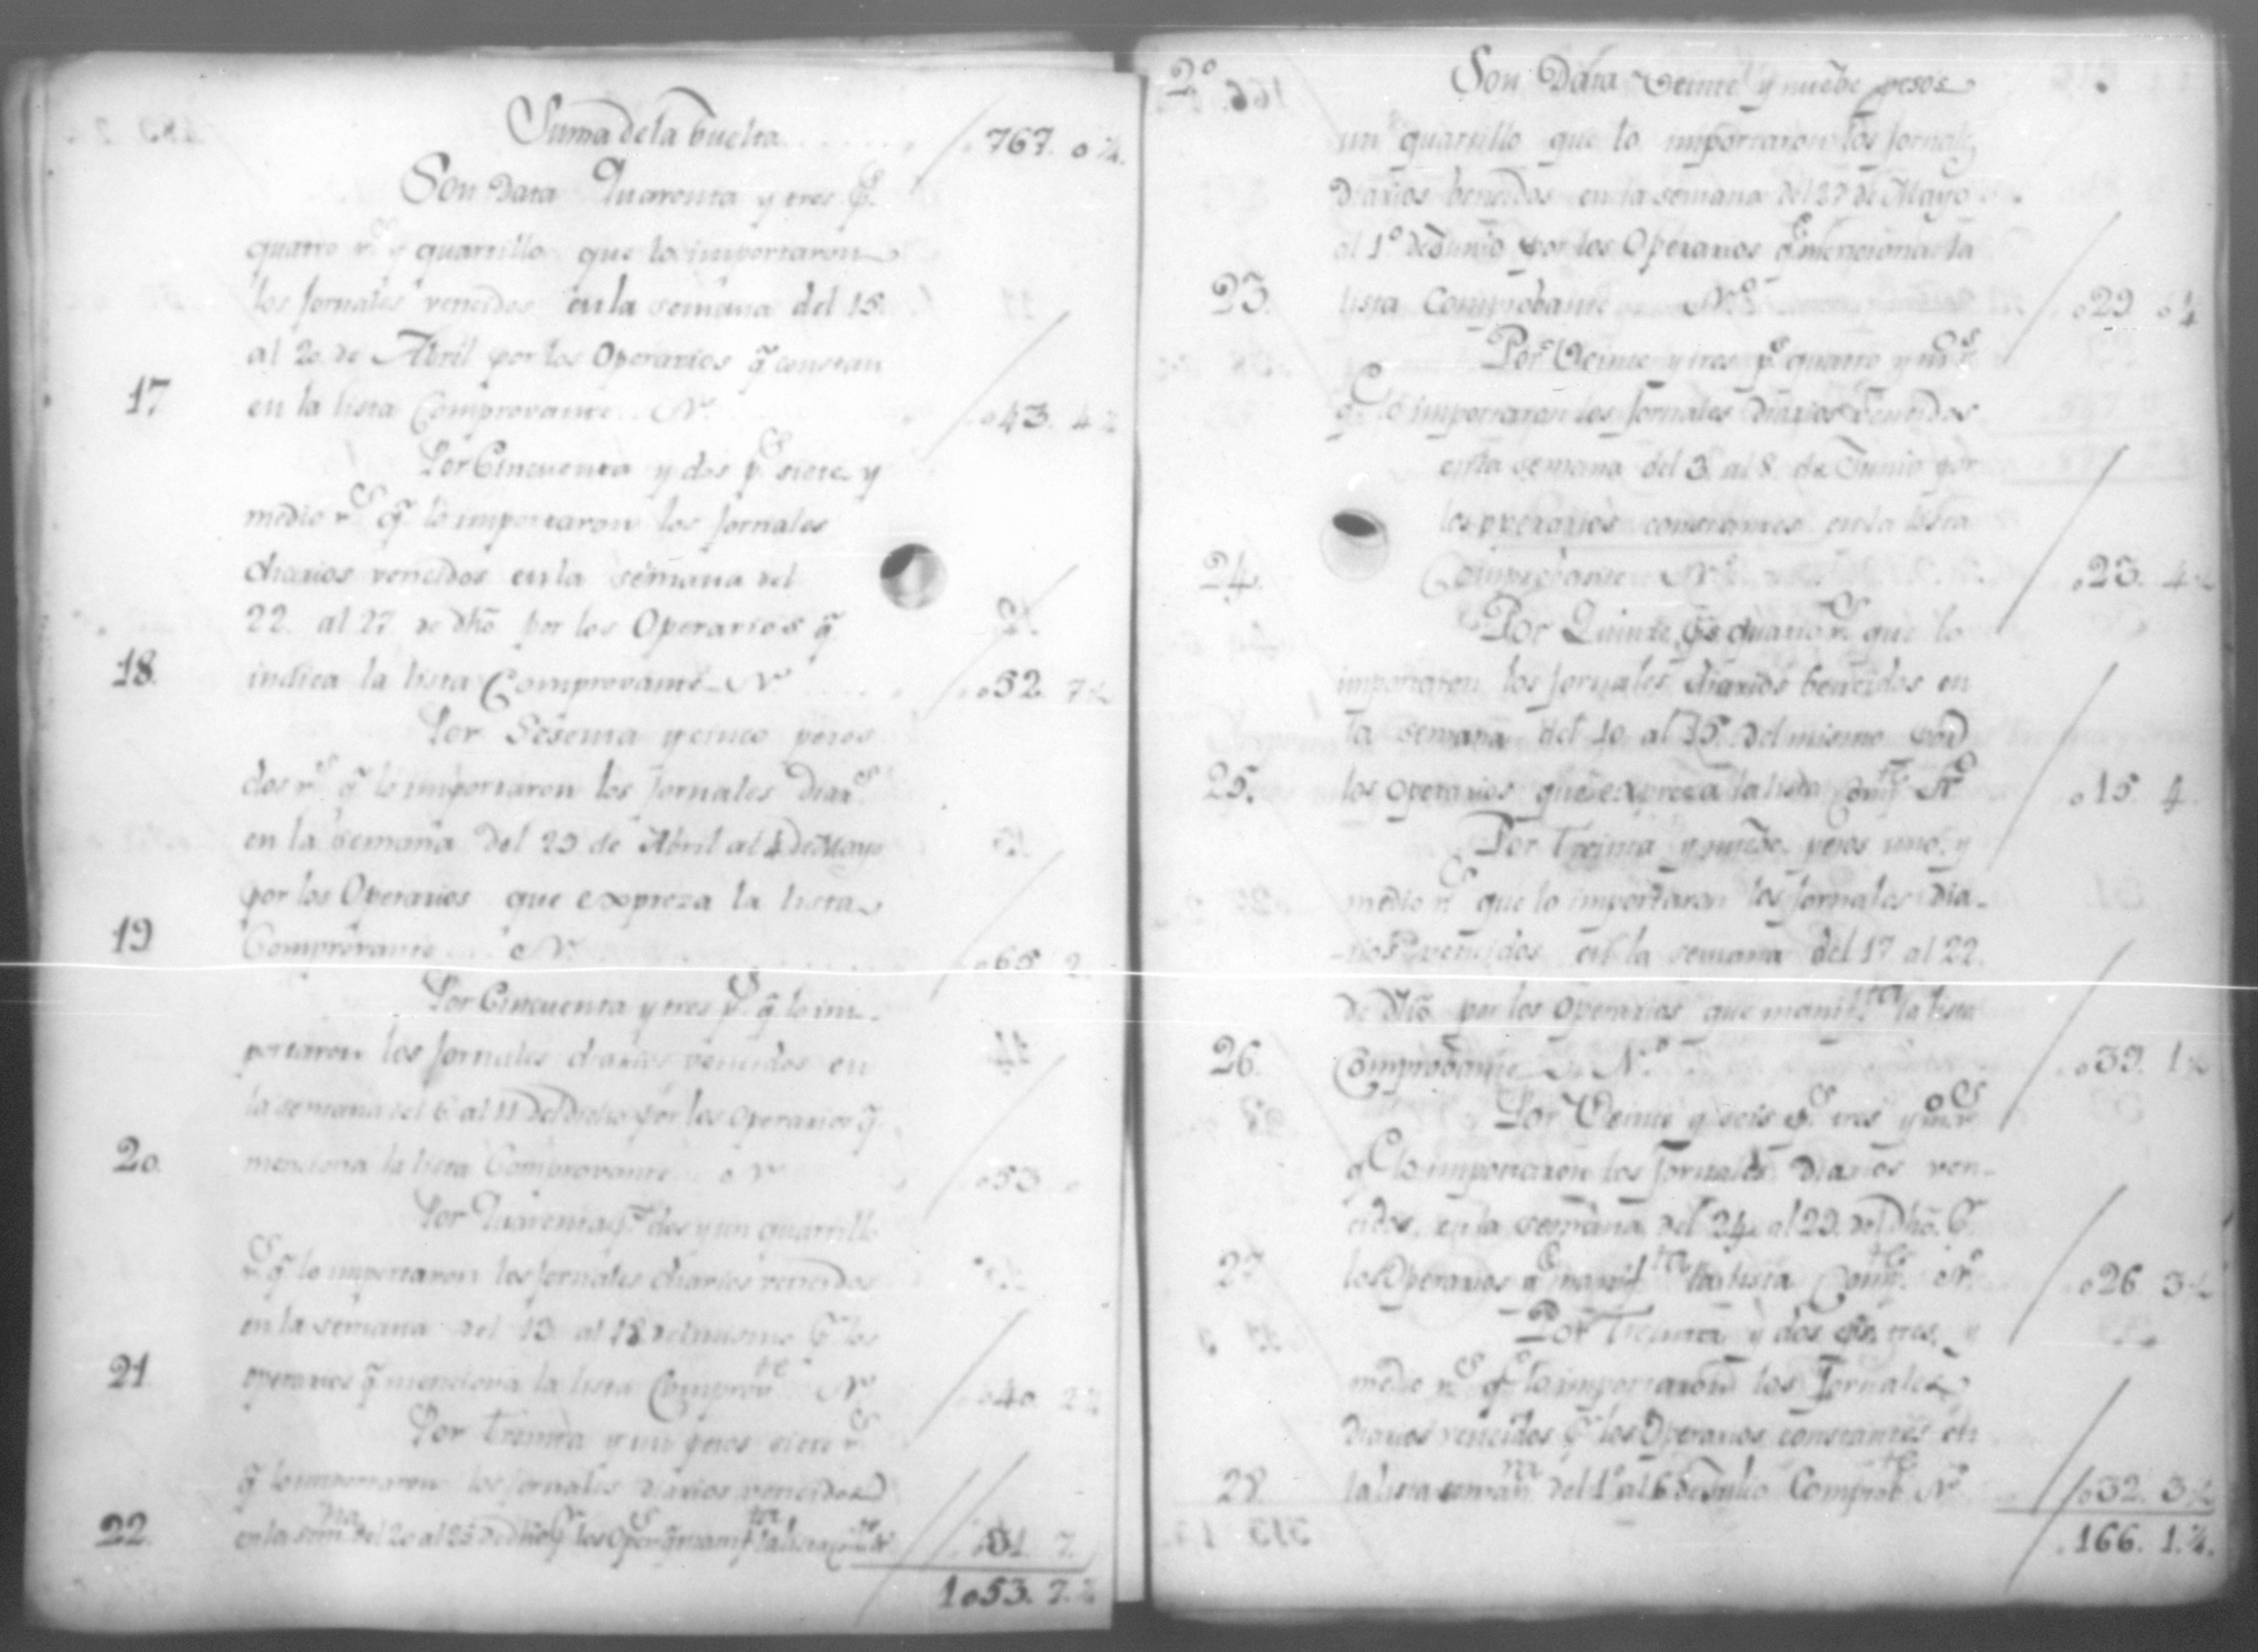 Suma de la buelta / 767. 0¼.
Son Data Quarenta y tres p.s
quatro r.s y quartillo que lo importaron
los jornales vencidos en la semana del 15.
al 20 de Abril por los Operarios q̃ constan
17 en la lista Comprovante N.º 043. 4¼
Por Cincuenta y dos p.s siete y
medio r.s q̃ lo importaron los jornales
diarios vencidos en la semana del
22. al 27 de dho por los Operarios q̃
18. indica la lista Comprovante N.º 052. 7½
Por Sesenta y cinco pesos
dos r.s q̃ lo importaron los jornales Diar.s
en la semana del 29 de Abril al 4 de Mayo
por los Operarios que expreza la lista
19 Comprovante N.º 065 2.
Por Cincuenta y tres p.s q̃ lo im-
portaron los jornales diarios vencidos en
la semana del 6 al 11 del Dicho por los Operarios q̃
20. menciona la lista Comprovante N.º 053.
Por Quarenta p.s dos y un quartillo
r.s q̃ lo importaron los jornales diarios vencidos
en la semana del 13 al 18 del mismo p.r los
21 operarios q̃ menciona la lista Comprov.te N.º 040. 2¼
Por treinta y un pesos siete r.s
q̃ lo importaron los jornales diarios vencidos
22. en la sem.na del 20 al 25 de dho p.r los Oper.s q̃ manif.ta la lista 031. 7.
1053. 7.¾
2º Son Data Veinte y nuebe pesos
un quartillo que lo importaron los jornal.s
Diarios bencidos en la semana del 27 de Mayo
al 1º de Junio por los Operarios q.e menciona la
23. lista Comprobante N.º 029 0¼
Por Veinte y tres p.s quatro y m.º r.s
q.e lo importaron los jornales diarios bencidos
en la semana del 3. al 8. de Junio por
los operarios constantes en la lista
24. Comprobante N.º 023. 4½
Por Quince p.s quatro r.s que lo
importaron los jornales diarios bencidos en
la semana del 10 al 15. del mismo por
25. los operarios que expreza la lista Comp.te N.º 015. 4.
Por Treinta y nuebe pesos uno y
medio r.s que lo importaron los jornales dia-
-rios vencidos en la semana del 17 al 22.
de dho por los operarios que manif.ta la lista
26. Comprobante N.º 039. 1½
Por Veinte y seis p.s tres y m.º r.s
q.e lo importaron los jornales Diarios ven-
cidos en la semana del 24 al 29. del dho. p.r
27 los Operarios q.e manif.ta la lista Comp.te N.º 026 3½
Por Treinta y dos p.s tres y
medio r.s q.e lo importaron los Jornales
Diarios vencidos p.r los Operarios constantes en
28. la lista seman.ra del 1º al 6 de Julio Comprob.te N.º 032. 3½
166. 1.¼.